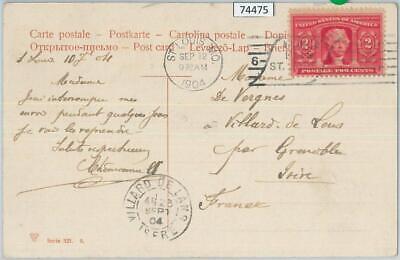 74475
Carte postale — Postkarte — Cartolina postale — Dopis
Открытое письмо — Post card — Levelező-Lap
ST. LOUIS, MO.
SEP 12
9 30 AM
1904
6
ST.
UNITED STATES OF AMERICA
2 2
POSTAGE TWO CENTS
S. Louis 10. 7. 04
Madame
J'ai interrompu mes
envois pendant quelques jours
je vais les reprendre
Saluts respectueux
Madame
De Vergnes
à Villard de Lans
par Grenoble
Isère
France
VILLARD DE LANS
SEPT
04
ISERE
Serie 321. 6.